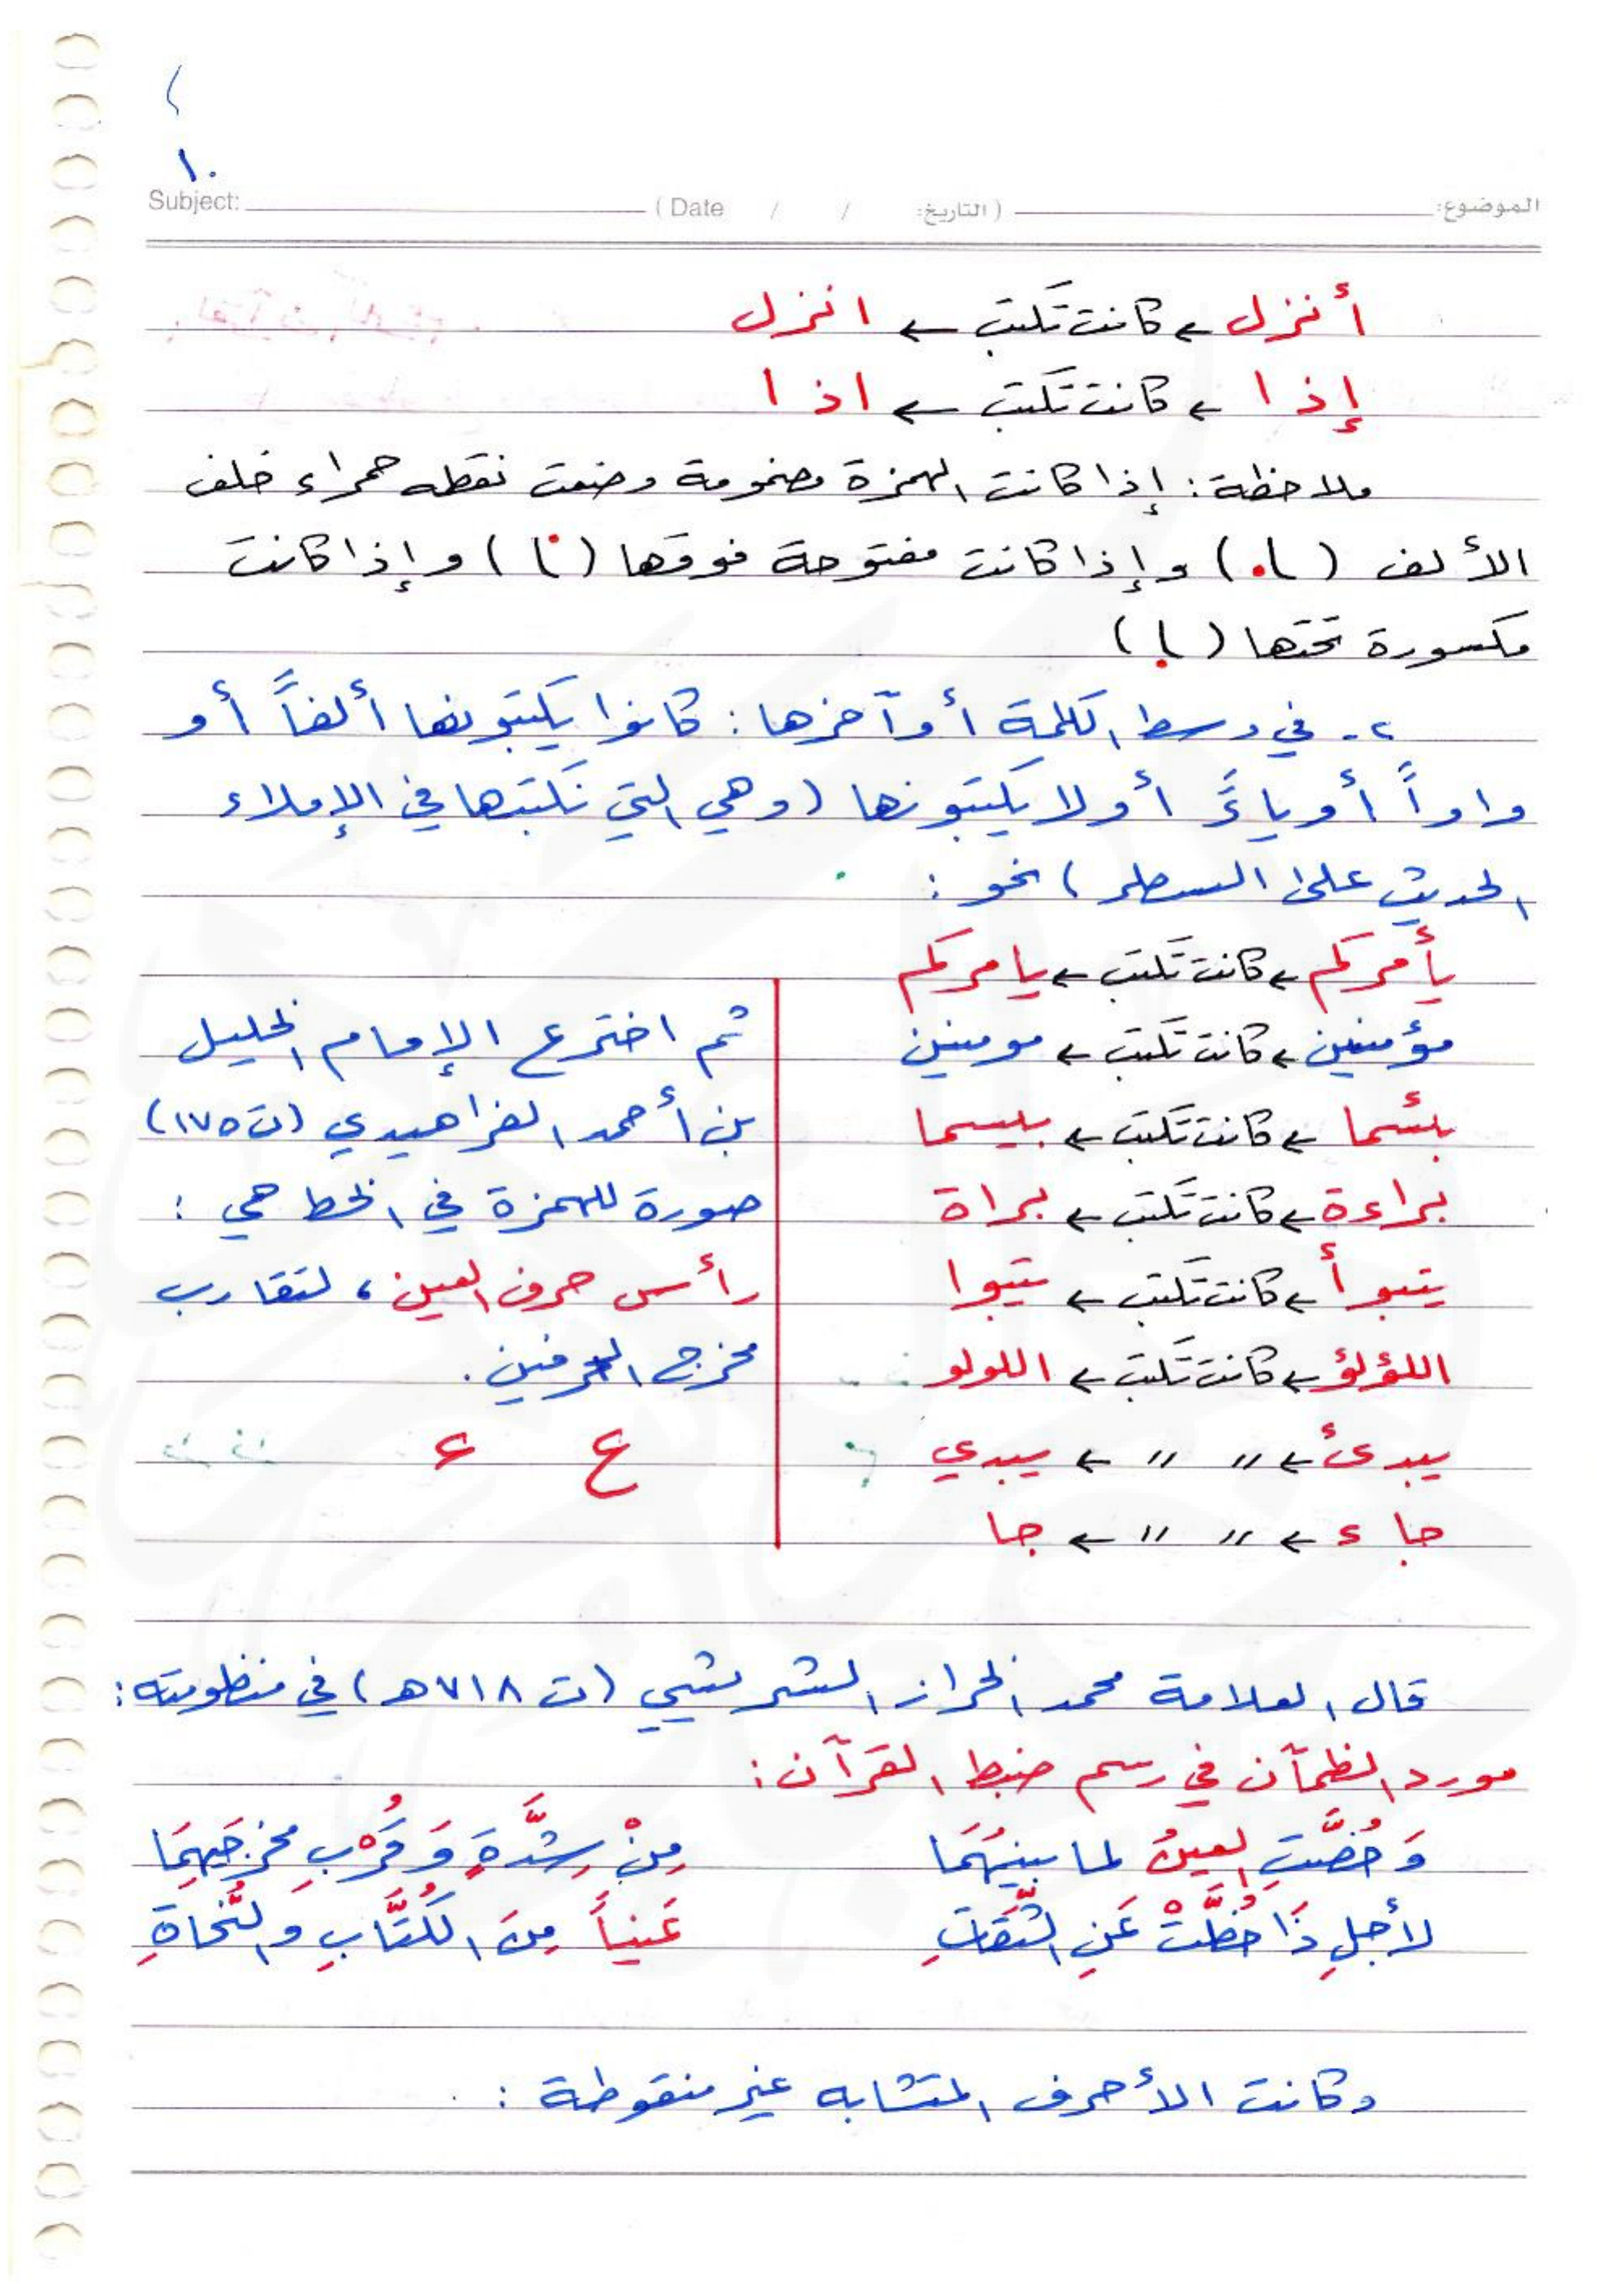 ١٠
Subject: ( Date / / التاريخ: ) الموضوع:
أنزل ← كانت تكتب ← انزل
إذا ← كانت تكتب ← اذا
ملاحظة: إذا كانت الهمزة مضمومة وضعت نقطه حمراء خلف
الألف (ا.) وإذا كانت مفتوحة فوقها (ا) وإذا كانت
مكسورة تحتها (ا)
٢- في وسط الكلمة أو آخرها: كانوا يكتبونها ألفاً أو
واواً أو ياءً أو لا يكتبونها (وهي التي نكتبها في الإملاء
الحديث على السطر) نحو:
يأمركم ← كانت تكتب ← يامركم
مؤمنين ← كانت تكتب ← مومنين
بئسما ← كانت تكتب ← بيسما
براءة ← كانت تكتب ← براة
يتبوأ ← كانت تكتب ← يتبوا
اللؤلؤ ← كانت تكتب ← اللولو
يبدئ ← 〃 〃 ← يبدي
جاء ← 〃 〃 ← جا
ثم اخترع الإمام الخليل
بن أحمد الفراهيدي (ت ١٧٥)
صورة للهمزة في الخط هي:
رأس حرف العين، لتقارب
مخرج الحرفين.
ع ء
قال العلامة محمد الخراز الشريشي (ت ٧١٨ هـ) في منظومته:
مورد الظمآن في رسم ضبط القرآن:
وَخُصَّتِ العينُ لما بينهُمَا مِنْ شِدَّةٍ وَقُرْبِ مخرجَيهِمَا
لأجلِ ذَا خُطَّتْ عَنِ الثِّقَاتِ عَيناً مِنَ الكُتَّابِ وَالنُّحاةِ
وكانت الأحرف المتشابه غير منقوطة: